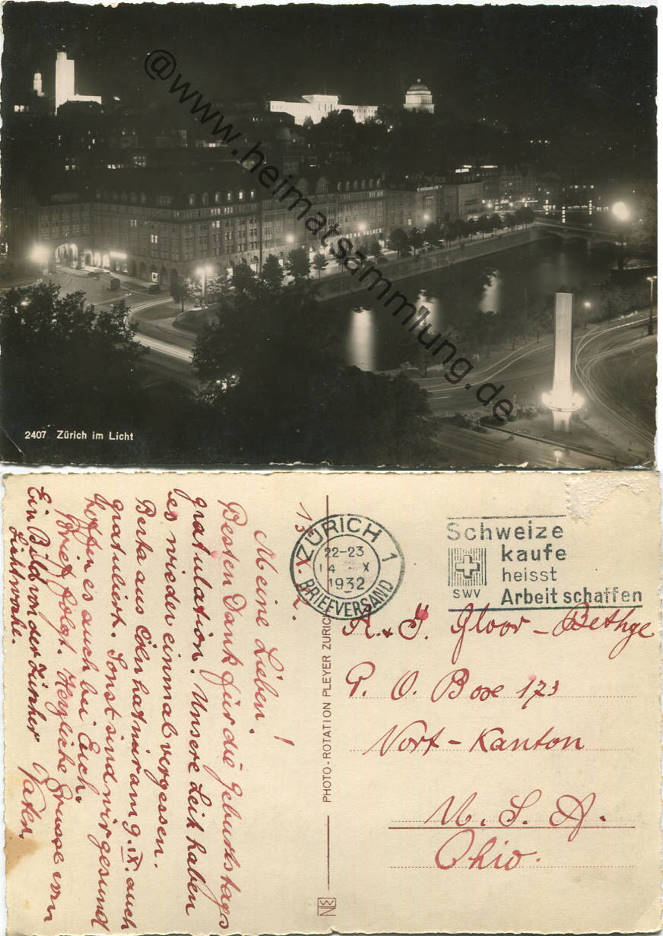 @www.heimatsammlung.de
2407 Zürich im Licht
13. X.
Meine Lieben!
Besten Dank für die Geburtstags
gratulation. Unsere Leit haben
es wieder einmal vergessen.
Berta aus Cöln hat mir am 9. IX. auch
gratuliert. Sonst sind wir gesund
hoffen es auch bei Euch.
Brief folgt. Herzliche Grüsse von
Ein Bild von der Zürcher Vater.
Lichtwoche.
PHOTO-ROTATION PLEYER ZÜRICH
ZÜRICH 1
22-23
14 X
1932
BRIEFVERSAND
Schweizer
kaufe
heisst
SWV Arbeit schaffen
A. & J. Gloor-Bethge
P. O. Boxe 173
Nort-Kanton
U. S. A.
Ohio.